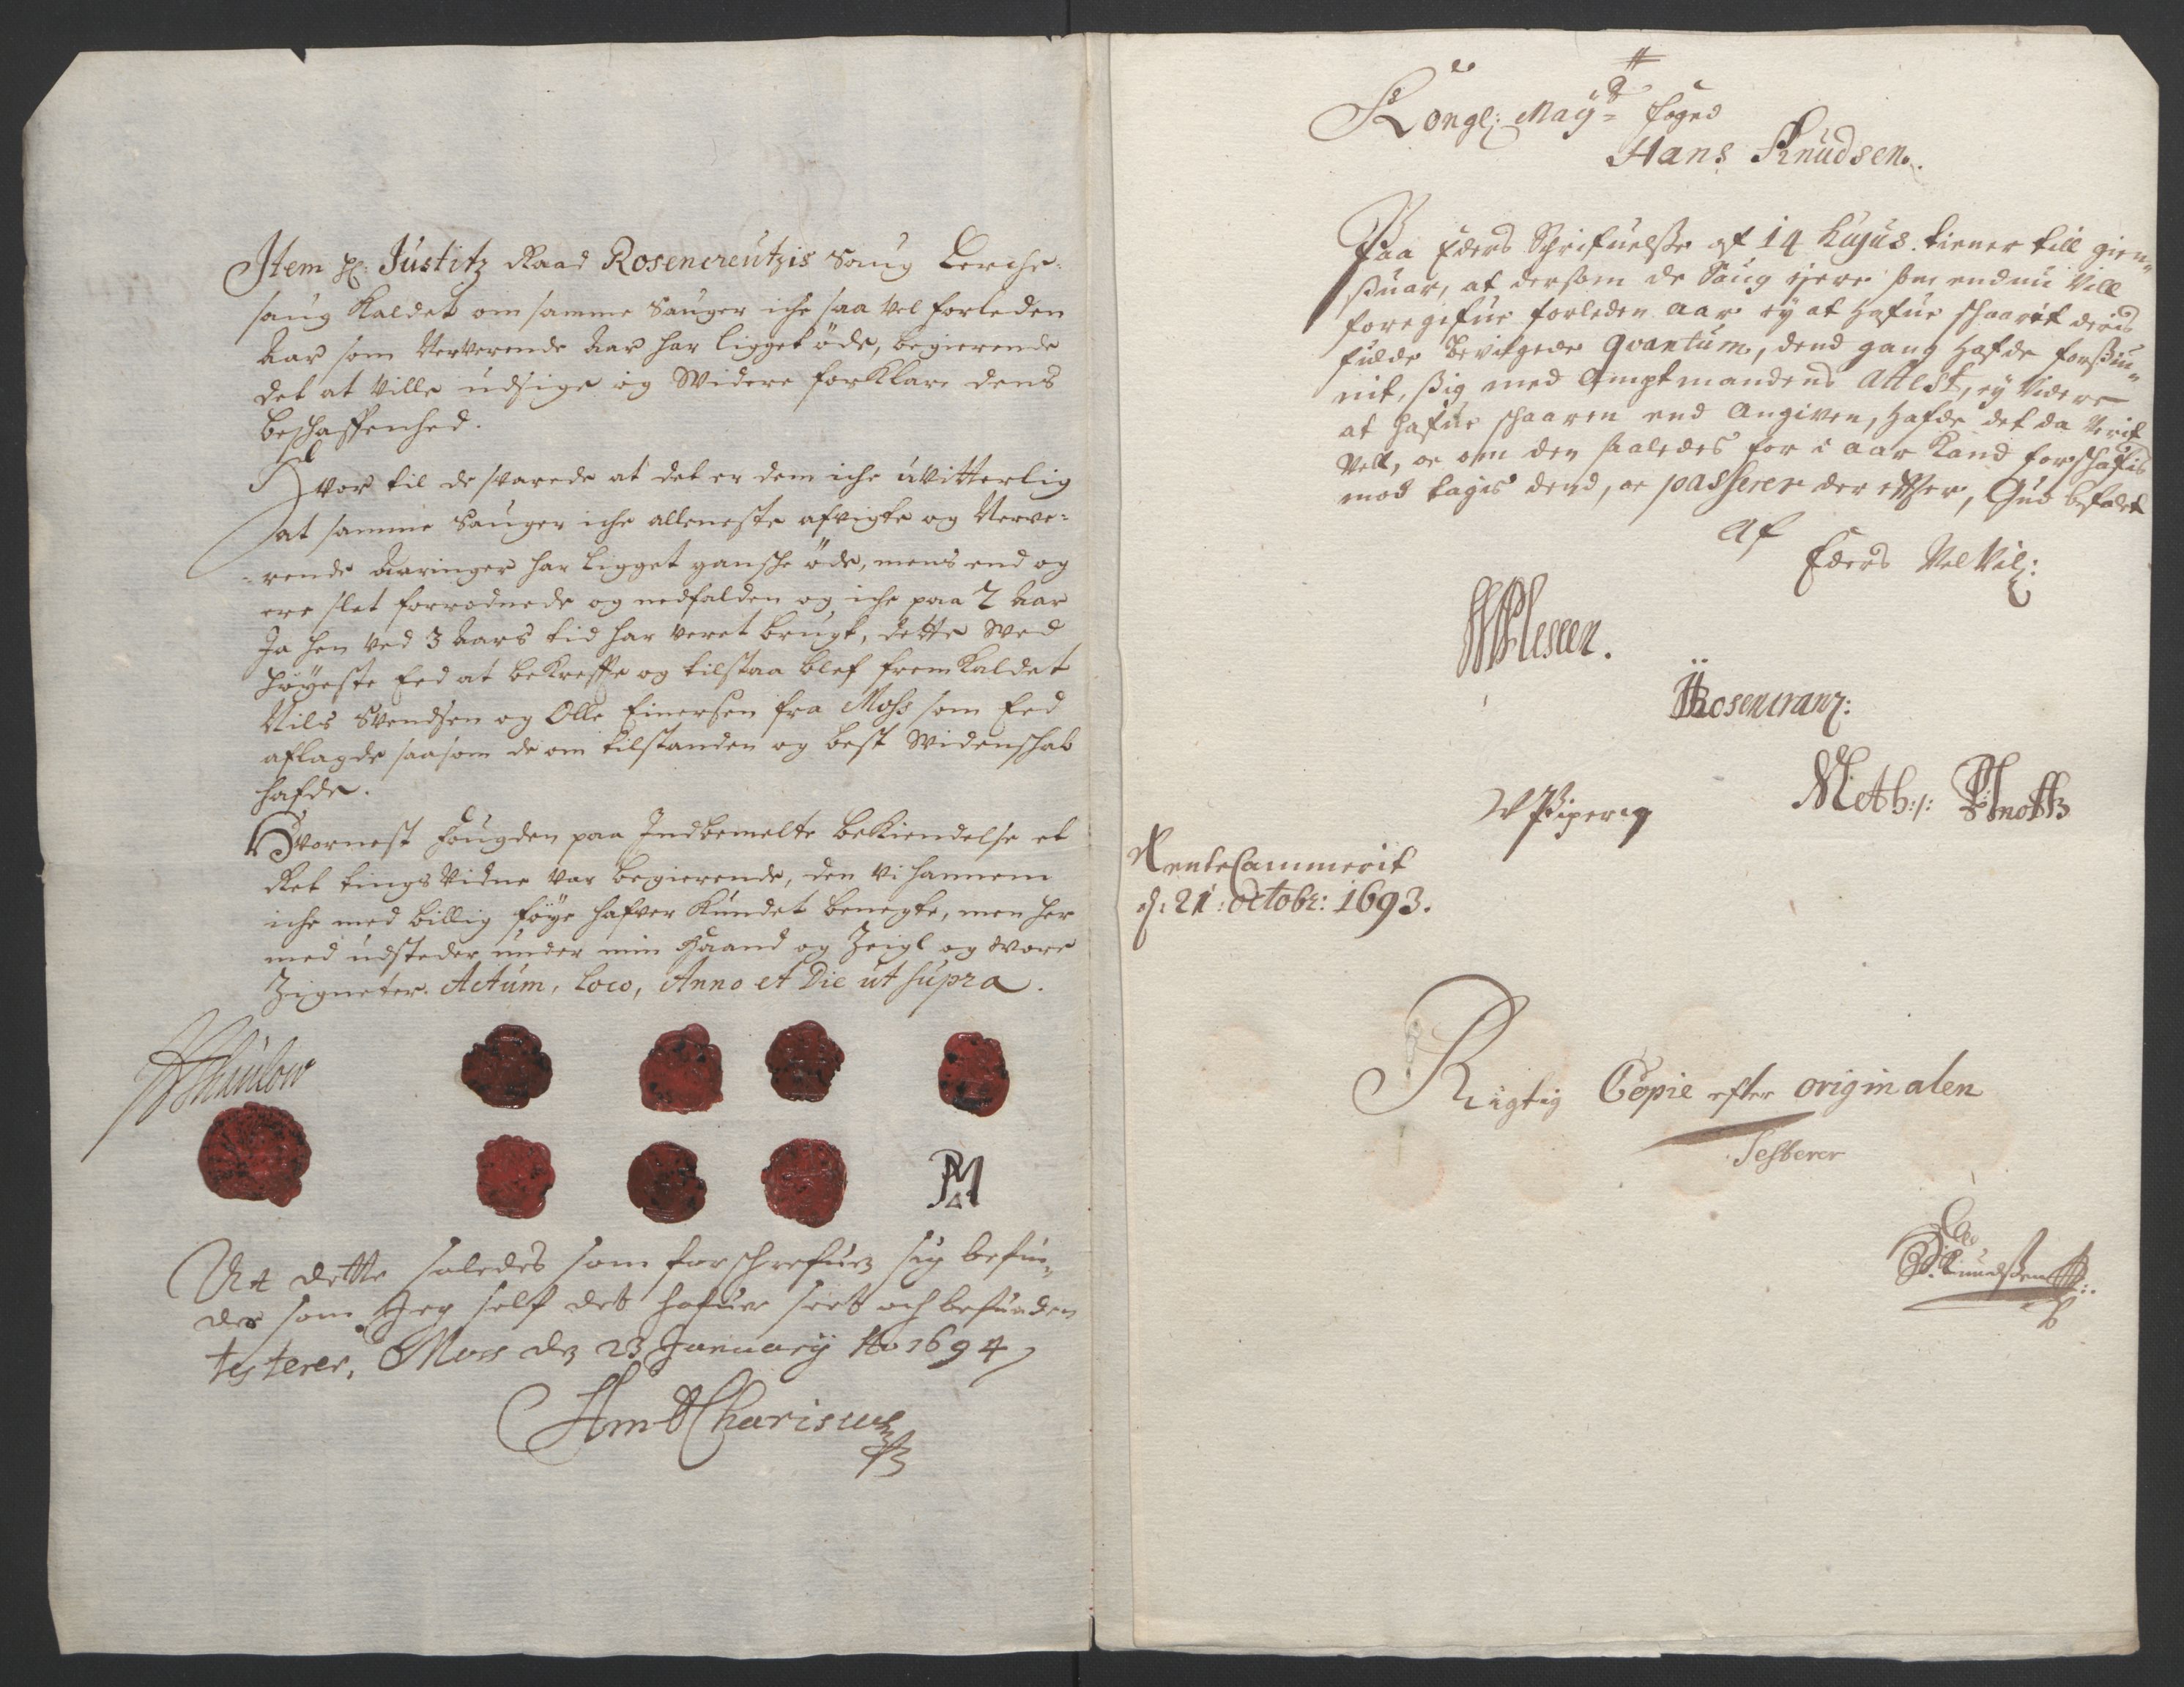 Item H: Justitz Raad Rosencreutzis Saug Lerche-
saug kaldet om samme Sauger iche saa vel forleden
Aar som Nerverende Aar har ligget øde, begierende
det at ville udsige og Widere forklare dens
beschaffenhed.
Hvor til de svarede at det er dem iche uvitterlig
at samme Sauger iche alleneste afvigte og Nerve-
rende Aaringer har ligget gansche øde, mens end og
ere slet forrodnede og nedfalden og iche paa 2 Aar
Ja hen ved 3 Aars tid har veret brugt, dette Wed
høyeste Eed at bekreffte og tilstaa blef fremkaldet
Nils Svendsen og Olle Einersen fra Moss som Eed
aflagde saasom de om tilstanden og best Widenschab
hafde.
Hvornest Fougden paa Indbemelte bekiendelse et
Ret tings Vidne var begierende, den Vi hannem
iche med billig føye hafver kundet benegte, men her
med udsteder under min Haand og Zeigl og Wore
Zigneter. Actum, Loco, Anno et Die ut supra.
PM
At dette saledes som forschrefuen sig befin-
der som Jeg self det hafuer seet och befunden
testerer, Moss den 23 January Ao 1694
Kongl: Mayts foged
Hans Knudsen.
Paa Eders Schrifuelsse af 14 hujus tiener till gien-
suar, at dersom de Saug ejere som endnu Vill
foregifue forleden aar ej at hafue schaarit deris
fulde bevilgede Qvantum, dend gang hafde forsiu-
nit, sig med Amptmandens Attest, ej Videre
at hafue schaaren end Angiven, hafde det da verit
Vell, oc om den saaledes for i aar kand forschafis
mod tages dend, oc passerer der effter, Gud befalet
Af
Eders VelVil:
Rosencrantz:
RenteCammerit
d: 21: octobr: 1693.
Rigtig Copie efter originalen
Testerer